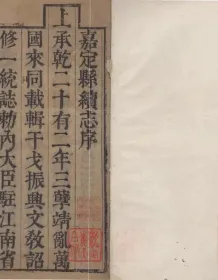 嘉定縣續志序
上承乾二十有二年三孽靖亂萬
國來同載輯干戈振興文敎詔
修一統誌勅內大臣駐江南省